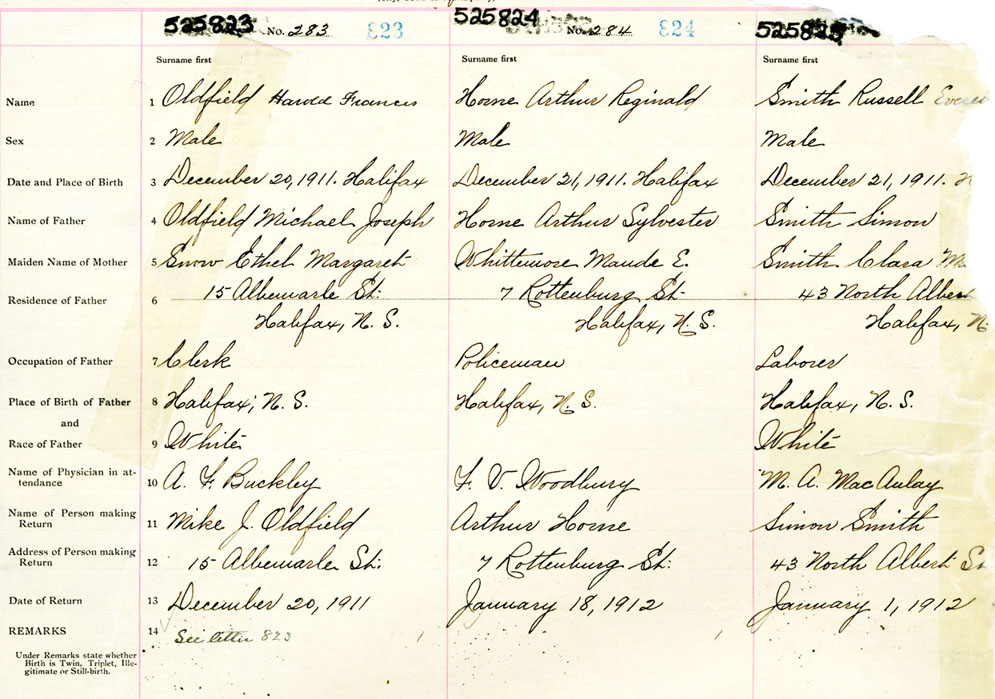 525823 No. 283 823 525824 No. 284 824 525825
Surname first Surname first Surname first
Name 1 Oldfield Harold Francis Horne Arthur Reginald Smith Russell
Sex 2 Male Male Male
Date and Place of Birth 3 December 20, 1911. Halifax December 21, 1911. Halifax December 21, 1911. H
Name of Father 4 Oldfield Michael Joseph Horne Arthur Sylvester Smith Simon
Maiden Name of Mother 5 Snow Ethel Margaret Whittemore Maude E. Smith Clara M
Residence of Father 6 15 Albemarle St. 7 Rottenburg St. 43 North Albert
Halifax, N. S. Halifax, N. S. Halifax, N.
Occupation of Father 7 Clerk Policeman Laborer
Place of Birth of Father 8 Halifax, N. S. Halifax, N. S. Halifax, N. S.
and
Race of Father 9 White White
Name of Physician in at-
tendance 10 A. F. Buckley F. V. Woodbury M. A. MacAulay
Name of Person making
Return 11 Mike J. Oldfield Arthur Horne Simon Smith
Address of Person making
Return 12 15 Albemarle St. 7 Rottenburg St. 43 North Albert St
Date of Return 13 December 20, 1911 January 18, 1912 January 1, 1912
REMARKS 14 See letter 823
Under Remarks state whether
Birth is Twin, Triplet, Ille-
gitimate or Still-birth.